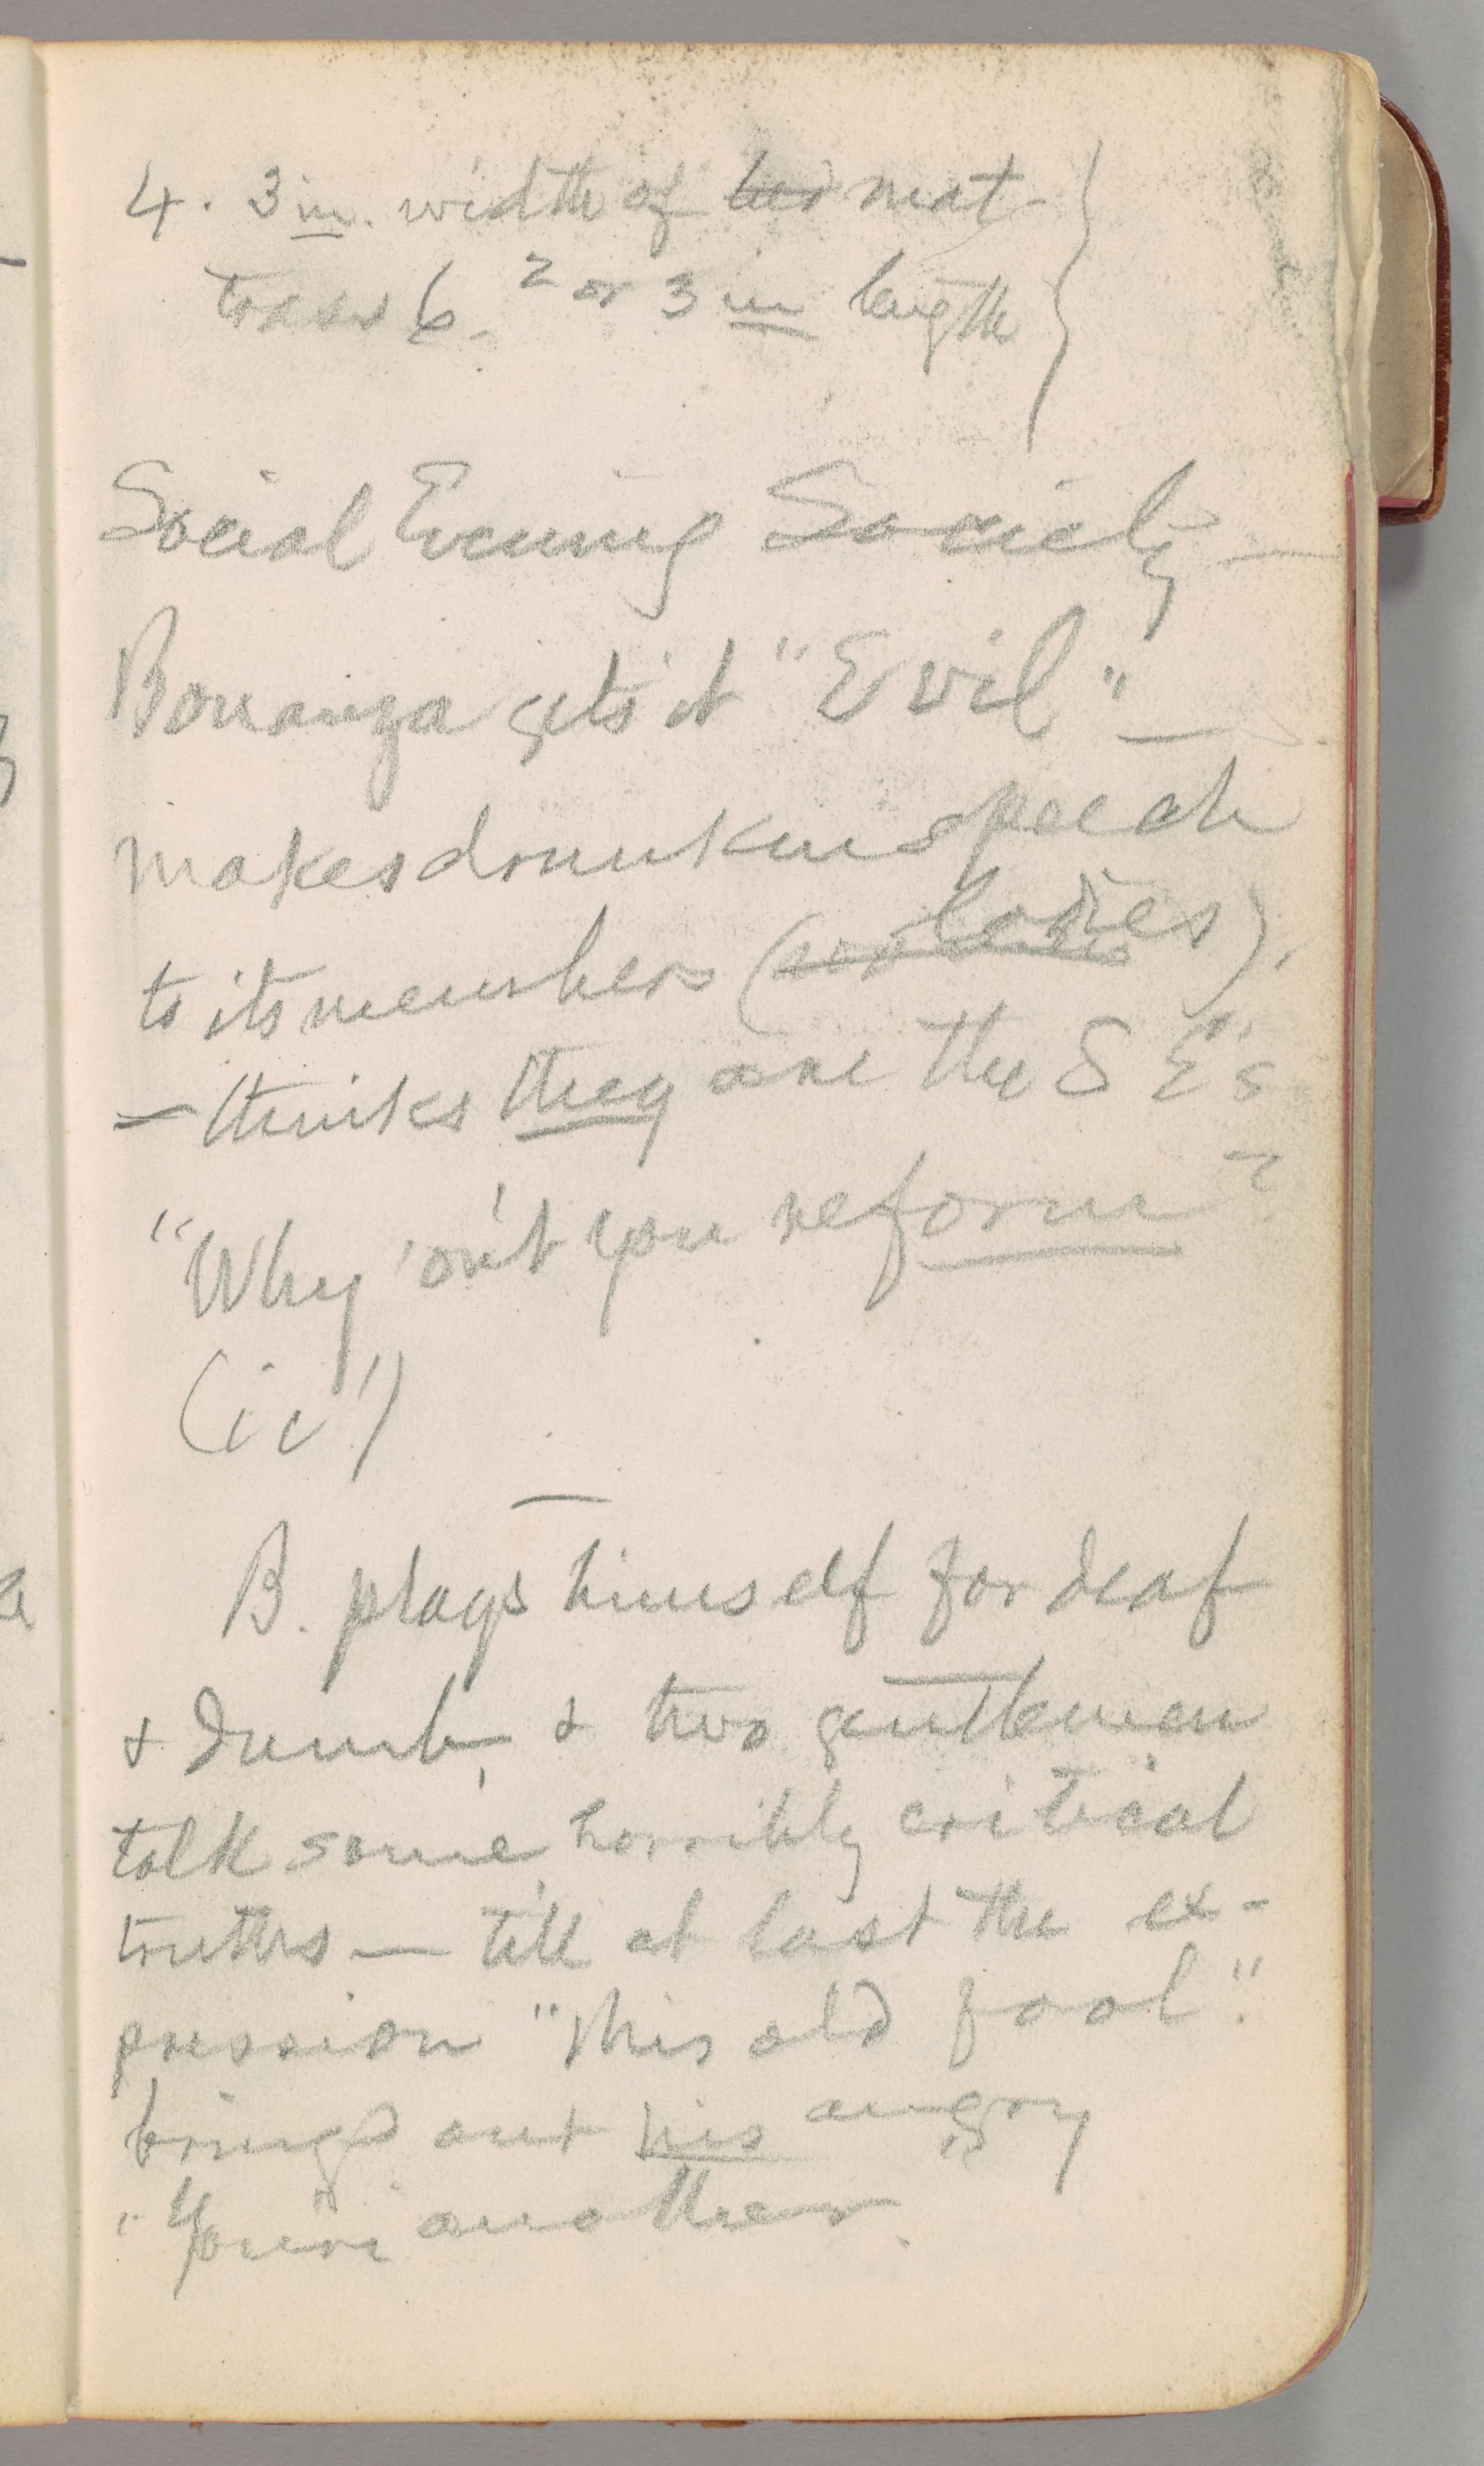 4. 3 in. width of bed mat
tress 6. 2 or 3 in length
Social Evening Society —
Bonanza gets it "Evil" —
makes drunken speech
to its members (ladies).
— thinks they are the S E's
"Why 'on't you reform?
(ic!)
—
B. plays himself for deaf
& dumb, & two gentlemen
talk some horribly critical
truths — till at last the ex-
pression "this old fool."
brings out his angry
"You're another.